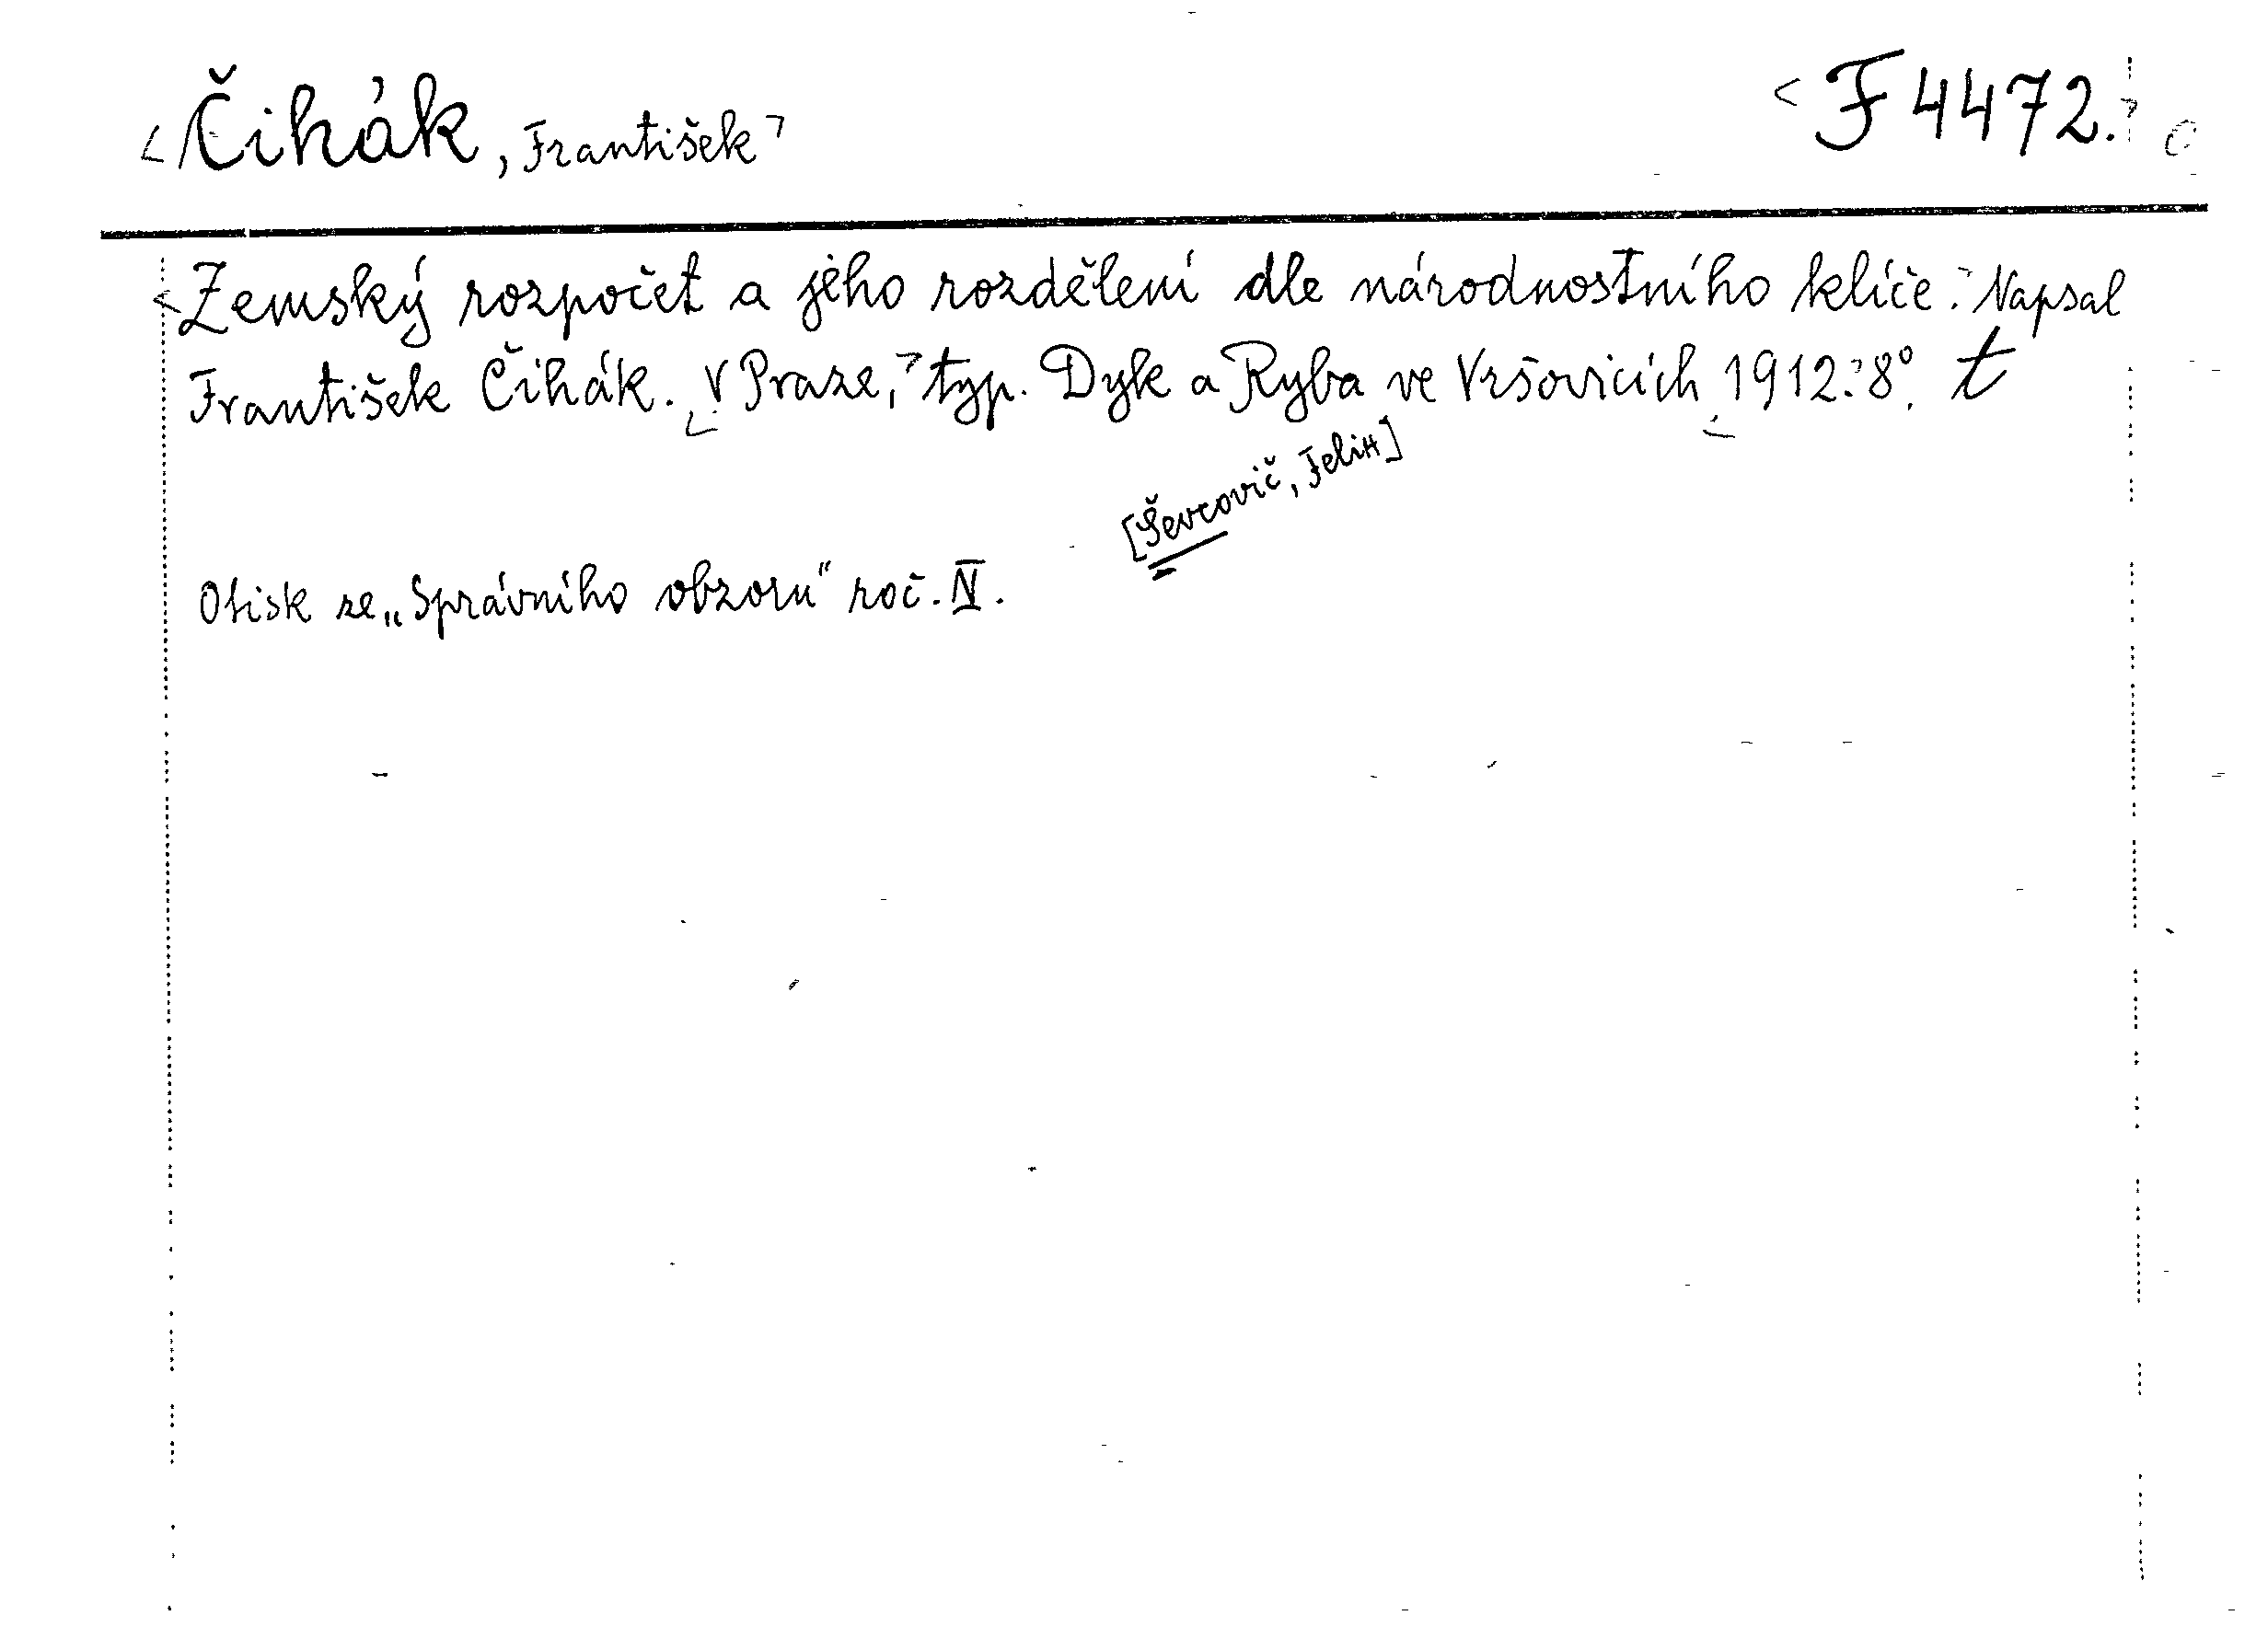 Čihák, František
F 4472.
Zemský rozpočet a jeho rozdělení dle národnostního klíče. Napsal
František Čihák. V Praze, typ. Dyk a Ryba ve Vršovicích 1912. 8°. t
[Ševcovič, Felix]
Otisk ze „Správního obzoru“ roč. IV.